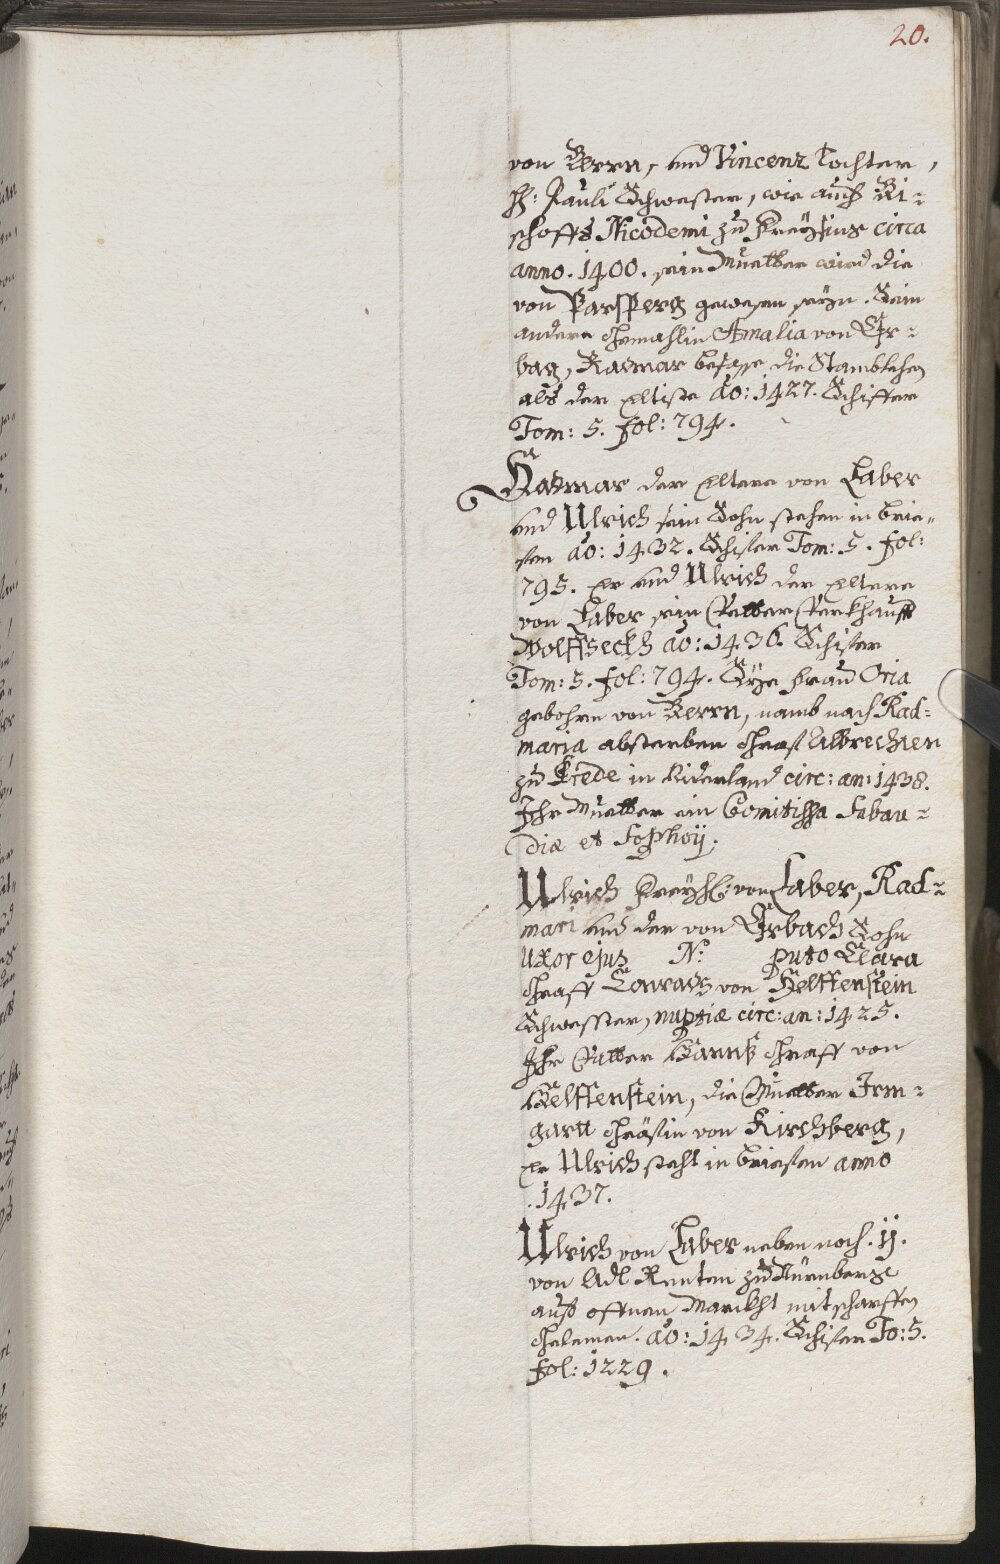 20.
von Bern, und Vincenz Tochter,
H: Pauli Schwester, wie auch Bi=
schoffs Nicodemi zu Freysing circa
anno. 1400. sein Muetter wird die
von Parsperg gewesen seyn. Sein
andere Gemahlin Amalia von Er=
bach, Hadmar besasse die Stamblehen
als der eltiste ao: 1427. Schiffer
Tom: 5. fol: 794.
Hadmar der eltere von Laber
und Ulrich sein Sohn stehen in brie=
fen ao: 1432. Schifer Tom: 5. fol:
795. er und Ulrich der eltere
von Laber sein Vetter Verkhaufft
Wolffseckh ao: 1436. Schifer
Tom: 5. fol: 794. Frau Oria
gebohrn von Bern, namb nach Had=
maria absterben Graf Albrechten
zu Brede in Niderland circ: an: 1438.
Ihr Muetter ein Comitissa Sabau=
diæ et Sophoÿ.
Ulrich Freyh: von Laber, Had=
mari und der von Erbach Sohn
uxor ejus N: puto Clara
Graff Conrads von Helffenstein
Schwester, nuptiæ circ: an: 1425.
Ihr Vatter Hannß Graff von
Helffenstein, die Muetter Irm=
gart Gräfin von Kirchberg,
er Ulrich steht in briefen anno
.1437.
Ulrich von Laber neben noch. ij.
von Adl Renten zu Nürnberg
auf offnen Marckht mit scharffen
ao: 1434. Schifer To: 5.
fol: 1229.